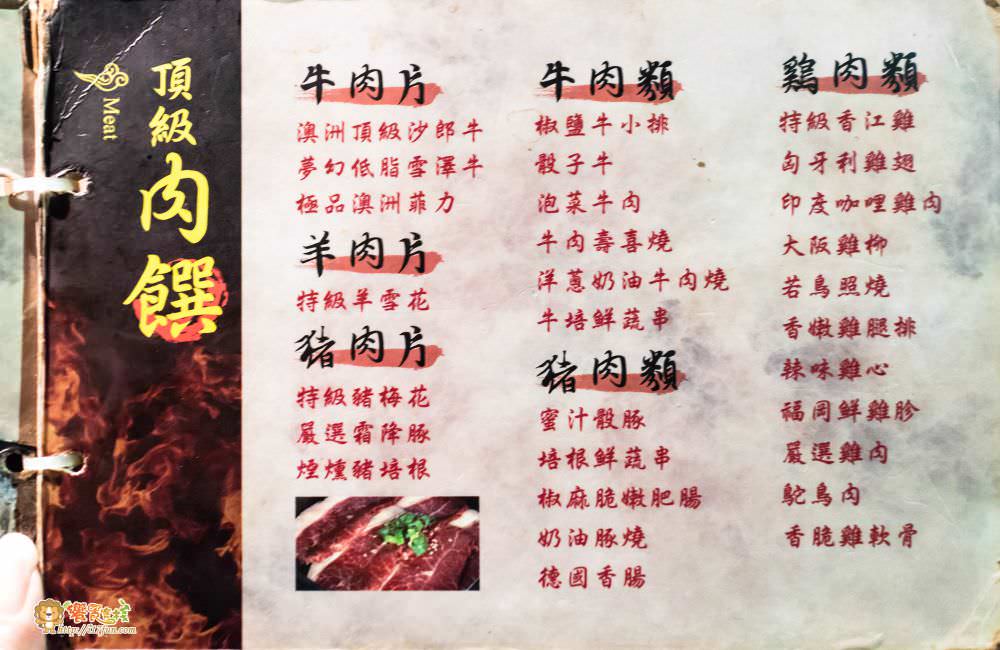 頂級肉饌
Meat
牛肉片
澳洲頂級沙郎牛
夢幻低脂雪澤牛
極品澳洲菲力
羊肉片
特級羊雪花
豬肉片
特級豬梅花
嚴選霜降豚
煙燻豬培根
牛肉類
椒鹽牛小排
骰子牛
泡菜牛肉
牛肉壽喜燒
洋蔥奶油牛肉燒
牛培鮮蔬串
豬肉類
蜜汁骰豚
培根鮮蔬串
椒麻脆嫩肥腸
奶油豚燒
德國香腸
鷄肉類
特級香江雞
匈牙利雞翅
印度咖哩雞肉
大阪雞柳
若鳥照燒
香嫩雞腿排
辣味雞心
福岡鮮雞胗
嚴選雞肉
鴕鳥肉
香脆雞軟骨